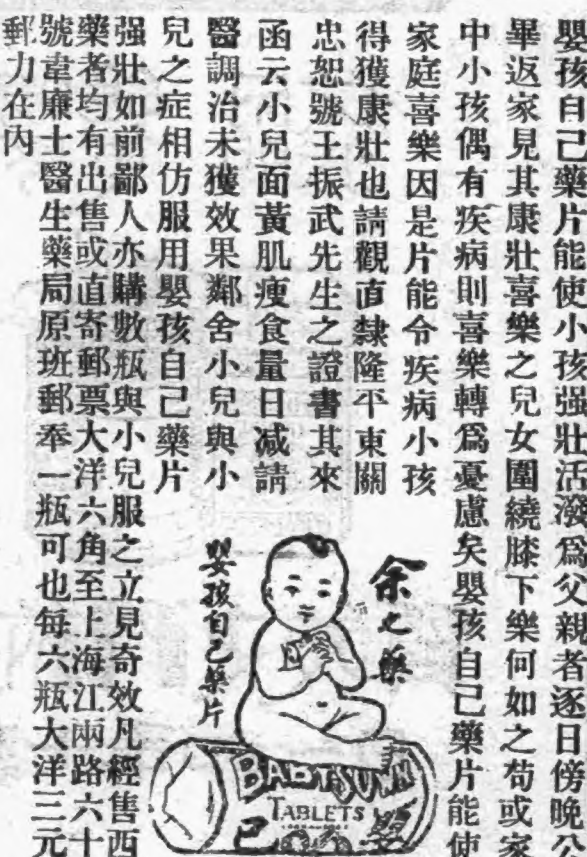 嬰孩自己藥片能使小孩强壯活潑爲父親者逐日傍晚公
畢返家見其康壯喜樂之兒女圍繞膝下樂何如之苟或家
中小孩偶有疾病則喜樂轉爲憂慮矣嬰孩自己藥片能使
家庭喜樂因是片能令疾病小孩
得獲康壯也請觀直隸隆平東關
忠恕號王振武先生之證書其來
函云小兒面黃肌瘦食量日減請
醫調治未獲效果鄰舍小兒與小
兒之症相仿服用嬰孩自己藥片
强壯如前鄙人亦購數瓶與小兒服之立見奇效凡經售西
藥者均有出售或直寄郵票大洋六角至上海江兩路六十
號韋廉士醫生藥局原班郵奉一瓶可也每六瓶大洋三元
郵力在內
余之藥
嬰孩自己藥片
BABY'S OWN
TABLETS
嬰
己